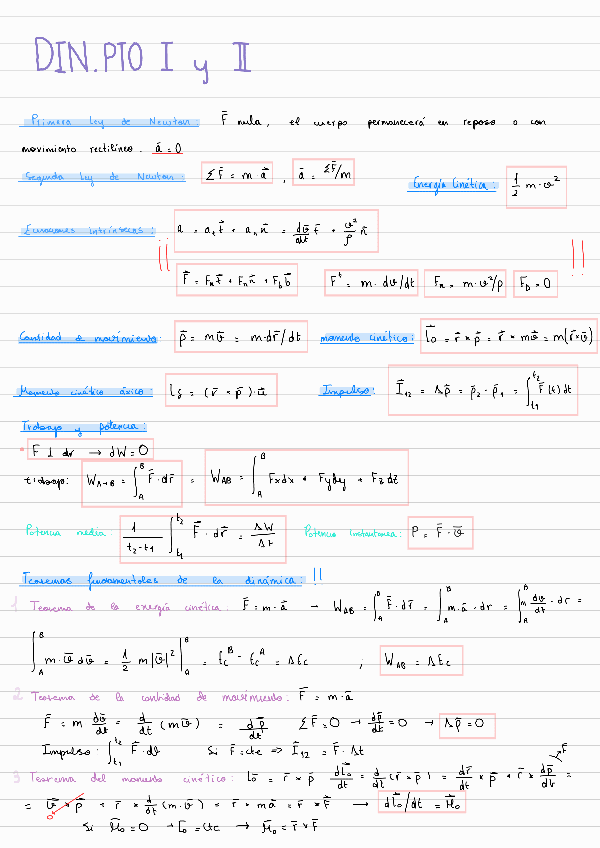 DIN. PTO I y II
Primera ley de Newton: F̄ nula, el cuerpo permanecerá en reposo o con
movimiento rectilíneo. ā = 0
Segunda ley de Newton: ΣF̄ = m·ā , ā = ΣF̄/m
Energía Cinética: 1/2 m·v²
Ecuaciones intrínsecas: a = aₜ t̄ + aₙ n̄ = dv̄/dt t̄ + v²/ρ n̄
!! F̄ = Fₙ t̄ + Fₙ n̄ + F_b b̄ Fᵗ = m·dv/dt Fₙ = m·v²/ρ F_b = 0 !!
Cantidad de movimiento: p̄ = m v̄ = m·dr̄/dt momento cinético: L̄o = r̄ × p̄ = r̄ × m v̄ = m(r̄ × v̄)
Momento cinético áxico: Lξ = (r̄ × p̄)·ū Impulso: Ī₁₂ = Δp̄ = p̄₂ - p̄₁ = ∫_{t₁}^{t₂} F̄(t) dt
Trabajo y potencia:
• F ⊥ dr → dW = 0
trabajo: W_{A→B} = ∫_A^B F̄·dr̄ = W_{AB} = ∫_A^B Fx dx + Fy dy + Fz dz
Potencia media: 1/(t₂-t₁) ∫_{t₁}^{t₂} F̄·dr̄ = ΔW/Δt Potencia instantanea: P = F̄·v̄
Teoremas fundamentales de la dinámica: !!
1 Teorema de la energía cinética: F̄ = m·ā → W_{AB} = ∫_A^B F̄·dr̄ = ∫_A^B m·ā·dr = ∫_A^B m dv̄/dt·dr =
∫_A^B m·v̄ dv̄ = 1/2 m|v̄|² |_A^B = Ec^B - Ec^A = ΔEc , W_{AB} = ΔEc
2 Teorema de la cantidad de movimiento: F̄ = m·ā
F̄ = m dv̄/dt = d/dt (m v̄) = dp̄/dt ΣF̄ = 0 → dp̄/dt = 0 → Δp̄ = 0
Impulso: ∫_{t₁}^{t₂} F̄·dt Si F̄ = cte => Ī₁₂ = F̄·Δt
F̄
3 Teorema del momento cinético: L̄o = r̄ × p̄ dL̄o/dt = d/dt (r̄ × p̄) = dr̄/dt × p̄ + r̄ × dp̄/dt =
= v̄ × p̄ + r̄ × d/dt (m·v̄) = r̄ × m ā = r̄ × F̄ → dL̄o/dt = M̄o
0
Si M̄o = 0 → L̄o = cte → M̄o = r̄ × F̄